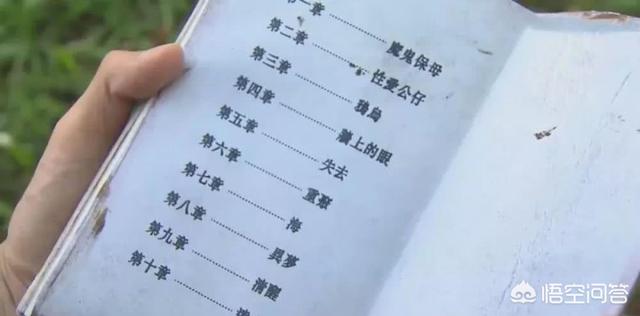 第一章………魔鬼保母
第二章………性愛公仔
第三章………我島
第四章………牆上的眼
第五章………失去
第六章………重聚
第七章………海
第八章………異夢
第九章………清醒
第十章………
悟空问答